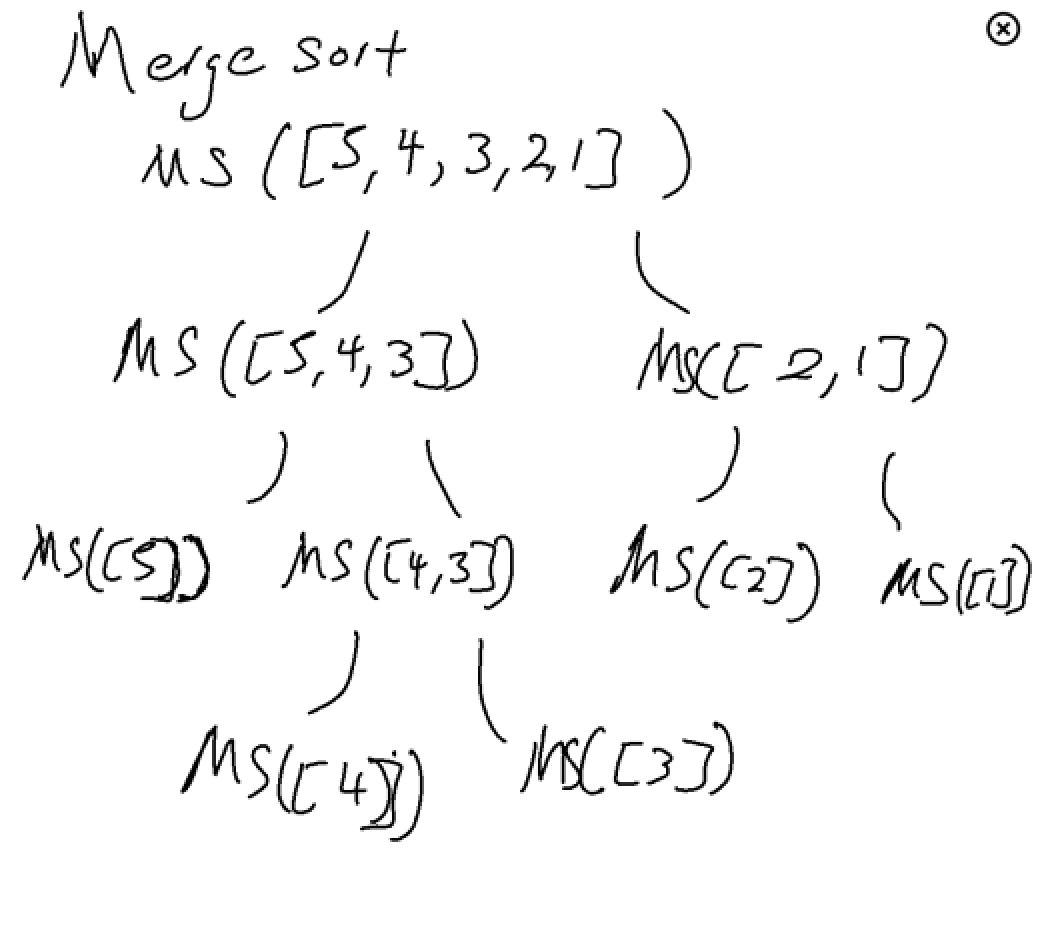 Merge sort
MS([5,4,3,2,1])
MS([5,4,3]) MS([2,1])
MS([5]) MS([4,3]) MS([2]) MS([1])
MS([4]) MS([3])